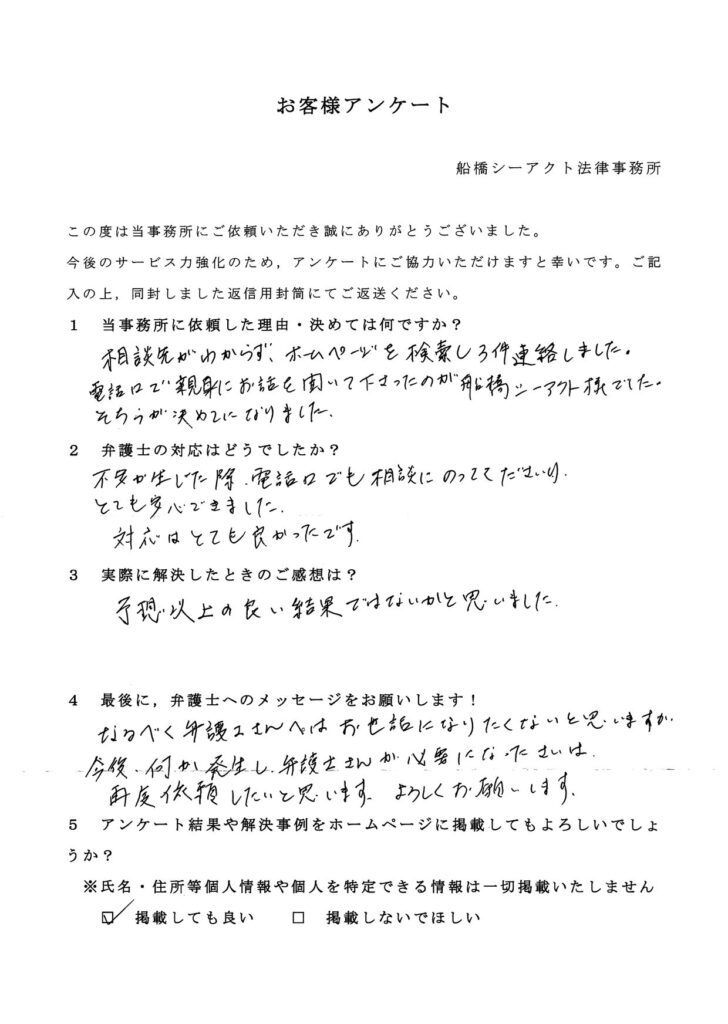 お客様アンケート
船橋シーアクト法律事務所
この度は当事務所にご依頼いただき誠にありがとうございました。
今後のサービス力強化のため，アンケートにご協力いただけますと幸いです。ご記
入の上，同封しました返信用封筒にてご返送ください。
１　当事務所に依頼した理由・決めては何ですか？
相談先がわからず、ホームページを検索し3件連絡しました。
電話口で親身にお話を聞いて下さったのが船橋シーアクト様でした。
そちらが決めてになりました。
２　弁護士の対応はどうでしたか？
不安が生じた際、電話口でも相談にのってくださり、
とても安心できました。
対応はとても良かったです。
３　実際に解決したときのご感想は？
予想以上の良い結果ではないかと思いました。
４　最後に，弁護士へのメッセージをお願いします！
なるべく弁護士さんへはお世話になりたくないと思いますが、
今後、何か発生し、弁護士さんが必要になったさいは、
再度依頼したいと思います。よろしくお願いします。
５　アンケート結果や解決事例をホームページに掲載してもよろしいでしょ
うか？
※氏名・住所等個人情報や個人を特定できる情報は一切掲載いたしません
☑　掲載しても良い　　□　掲載しないでほしい